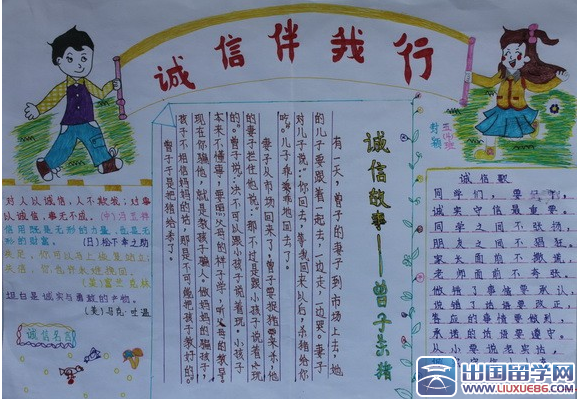 诚信伴我行
对人以诚信，人不欺我；对事
以诚信，事无不成。(中)冯玉祥
信用既是无形的力量，也是无
形的财富。(日)松下幸之助
(美)富兰克林
坦白是诚实与勇敢的产物。
(美)马克·吐温
诚信名言
诚信故事——曾子杀猪
有一天，曾子的妻子到市场上去，她
的儿子要跟着一起去，一边走，一边哭。妻子
对儿子说：“你回去，等我回来以后，杀猪给你
吃。”儿子乖乖地回去了。
妻子从市场回来了，曾子要捉猪来杀，他
的妻子拦住他说：“那不过是跟小孩子说着玩
的。”曾子说：“决不可以跟小孩子说着玩。小孩子
本来不懂事，要照父母的样子学，听父母的教导。
现在你骗他，就是教孩子骗人。做妈妈的骗孩子，
孩子不相信妈妈的话，那是不可能把孩子教好的。
曾子于是把猪给杀了。
诚信歌
同学们，要
诚实守信最重要。
同学之间不张扬
朋友之间不猖狂。
家长面前不撒谎，
老师面前不夸张。
做错了事情要承认，
说错了话语要改正，
答应的事情要做到，
承诺的话语要遵守。
从小要说老实话，
出国留学网
WWW.LIUXUE86.COM